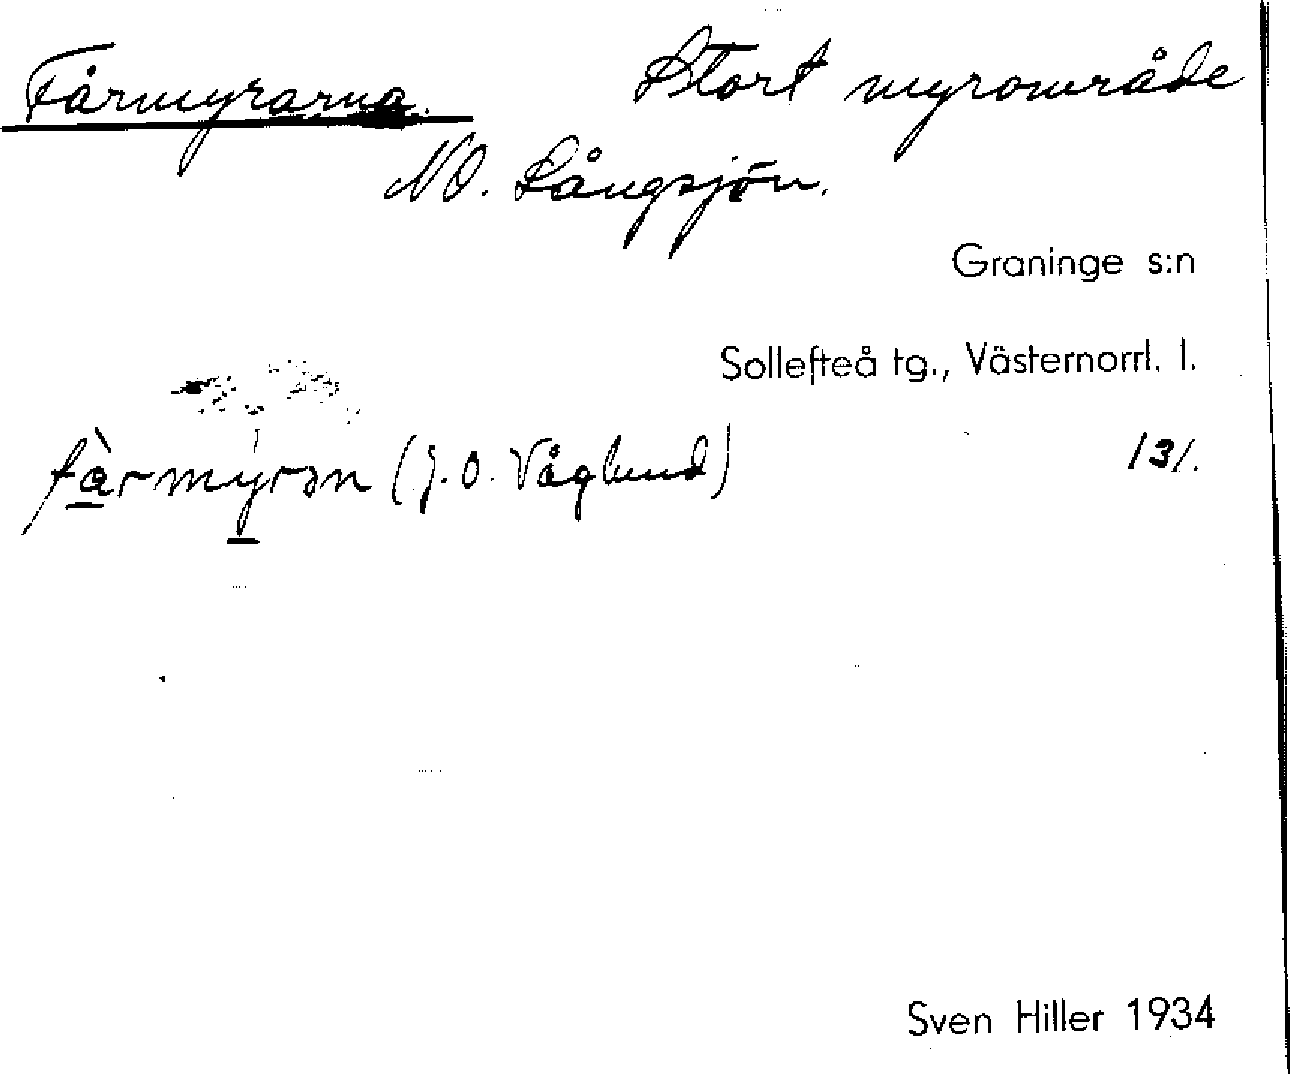 Fårmyrarna. Stort myrområde
NO. Långsjön.
Graninge s:n
Sollefteå tg., Västernorrl. l.
fàrmyrən (J. O. Våglund) /3/.
Sven Hiller 1934